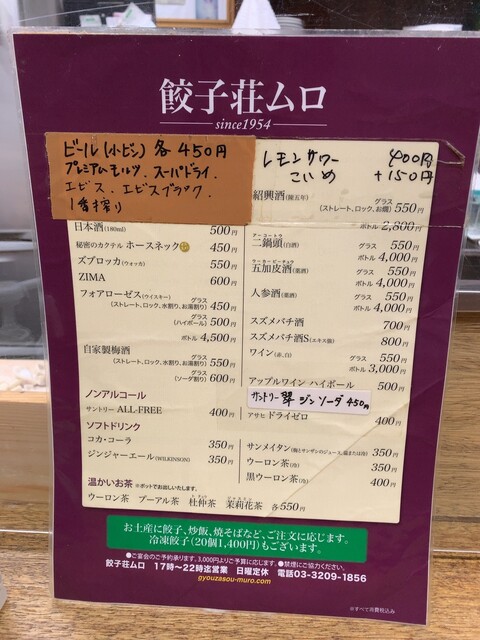 餃子荘ムロ
since1954
ビール(小ビン) 各450円
プレミアムモルツ．スーパードライ．
エビス．エビスブラック．
1番搾り
日本酒(180ml) 500円
秘密のカクテル ホースネック 450円
ズブロッカ(ウォッカ) 550円
ZIMA 600円
フォアローゼス(ウイスキー) グラス
(ストレート、ロック、水割り、お湯割り) 450円
グラス
(ハイボール) 500円
ボトル 4,500円
自家製梅酒 グラス
(ストレート、ロック、水割り、お湯割り) 550円
(ソーダ割り) 600円
ノンアルコール
サントリー ALL-FREE 400円
ソフトドリンク
コカ・コーラ 350円
ジンジャーエール(WILKINSON) 350円
レモンサワー 400円
こいめ +150円
紹興酒(陳五年) グラス
(ストレート、ロック、お燗) 550円
ボトル 2,800円
二鍋頭(白酒) グラス 550円
アーコートウ
ボトル 4,000円
五加皮酒(薬酒) グラス 550円
ウーカーピーチュウ
ボトル 4,000円
人参酒(薬酒) グラス 550円
ボトル 4,000円
スズメバチ酒 700円
スズメバチ酒S(エキス強) 800円
ワイン(赤、白) グラス 550円
ボトル 3,000円
アップルワイン ハイボール 500円
サントリー 翠 ジンソーダ 450円
アサヒ ドライゼロ 400円
サンメイタン(梅とサンザシのジュース、温または冷) 350円
ウーロン茶(冷) 350円
黒ウーロン茶(冷) 400円
温かいお茶 ※ポットでお出しいたします。
ウーロン茶 プーアル茶 杜仲茶 茉莉花茶 各550円
お土産に餃子、炒飯、焼そばなど、ご注文に応じます。
冷凍餃子(20個1,400円)もございます。
●ご宴会のご予約承ります。3,000円よりご予算に応じます。●禁煙にご協力ください。
餃子荘ムロ 17時〜22時迄営業 日曜定休 電話03-3209-1856
gyouzasou-muro.com
※すべて消費税込み